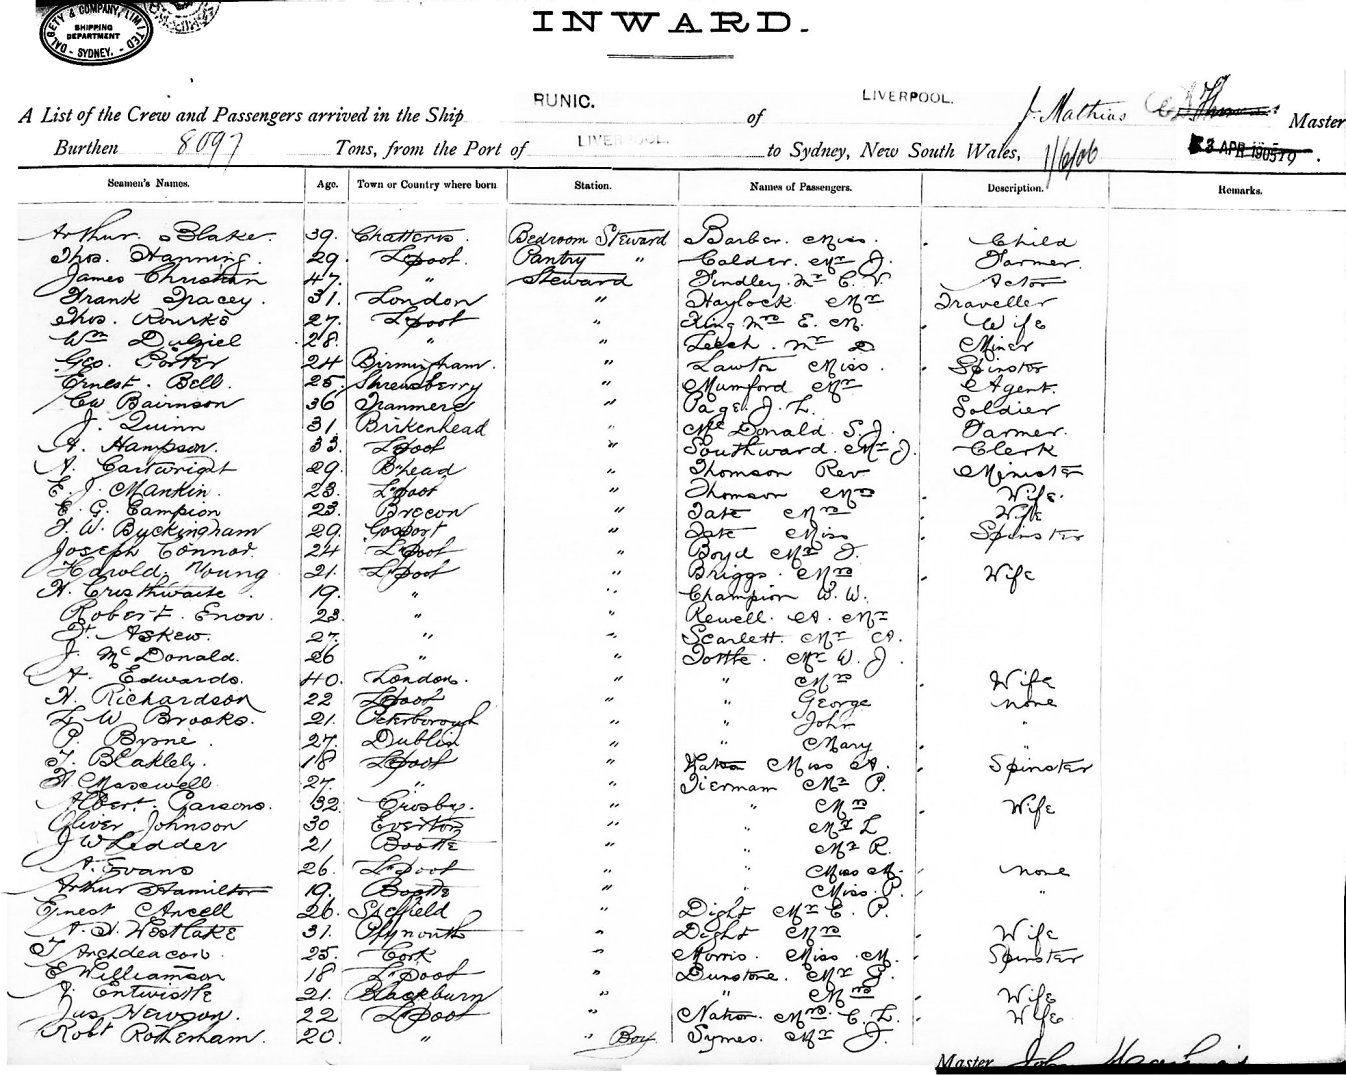 DALGETY & COMPANY, LIMITED
SHIPPING
DEPARTMENT
- SYDNEY. -
INWARD.
A List of the Crew and Passengers arrived in the Ship RUNIC. of LIVERPOOL. J. Mathias Master
Burthen 8097 Tons, from the Port of LIVERPOOL. to Sydney, New South Wales, 1/6/06 3 APR 1905
Seamen's Names. Age. Town or Country where born Station. Names of Passengers. Description. Remarks.
Arthur. Blake. 39. Chatteris. Bedroom Steward Barber. Miss. Child
Thos. Hanning. 29. L'pool. Pantry " Calder. Mr J. Farmer.
James Christian 47. " Steward Findley. Mr C. V. Actor
Frank Tracey. 31. London " Haylock Mr Traveller
Thos. Rourke 27. L'pool " King Mrs E. M. Wife
Wm Dalziel 28. " " Leech. Mr Miner
Geo. Porter 24 Birmingham. " Lawton Miss. Spinster
Ernest. Bell. 25. Shrewsberry " Mumford Mr Agent.
Bairnson 36 Tranmere " Page. J. L. Soldier
J. Quinn 31. Birkenhead " McDonald. S. J. Farmer.
A. Hampson. 33. L'pool " Southward. Mr J. Clerk
A. Cartwright 29. B'head " Thomson Rev Minister
E. J. Mankin. 23. L'pool " Thomson Mrs Wife.
E. G. Campion 23. Brecon " Tate Mrs Wife
F. W. Buckingham 29. Gosport " Tate Miss Spinster
Joseph Connor. 24 L'pool " Boyd Mr J.
Harold. Young 21. L'pool " Briggs. Mrs Wife
H. Cristhwaite. 19. " " Champion W. W.
Robert. Enon. 23. " " Rewell. A. Mr
Askew. 27. " " Scarlett. Mr A.
J. McDonald. 26 " " Tottle. Mr W. J.
A. Edwards. 40. London. " " Mrs Wife
H. Richardson 22 L'pool " " George none
W. Brooks. 21. Peterborough " " John "
P. Byrne. 27. Dublin " " Mary "
T. Blakley. 18 L'pool " Watson Miss A. Spinster
H Maxwell 27. " " Tiernam Mr P.
Albert. Parsons. 32. Crosby. " " Mrs Wife
Oliver Johnson 30 Everton " " Mr L
J W Ledder 21 Bootle " " Mr R.
A. Evans 26. L'pool " " Miss M. none
Arthur Hamilton 19. Bootle " " Miss. P. "
Ernest Ancell 26. Sheffield " Dight Mr E. P.
Westlake 31. Plymouth " Dight Mrs Wife
T Archdeacon. 25. Cork " Morris. Miss. M. Spinster
E Williamson 18 L'pool " Dunstone. Mr G.
J. Entwistle 21. Blackburn " " Mrs Wife
Jas Hewson. 22 L'pool " Nation. Mrs C. L. Wife
Robt Rotherham. 20. " " Boy Symes. Mr J.
Master